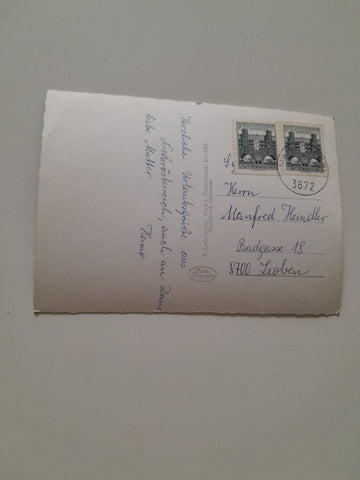 Herzliche Urlaubsgrüße aus
Niederösterreich, auch an Deine
liebe Mutter
Herrn
Manfred Heindler
Badgasse 18
8700 Leoben
3672